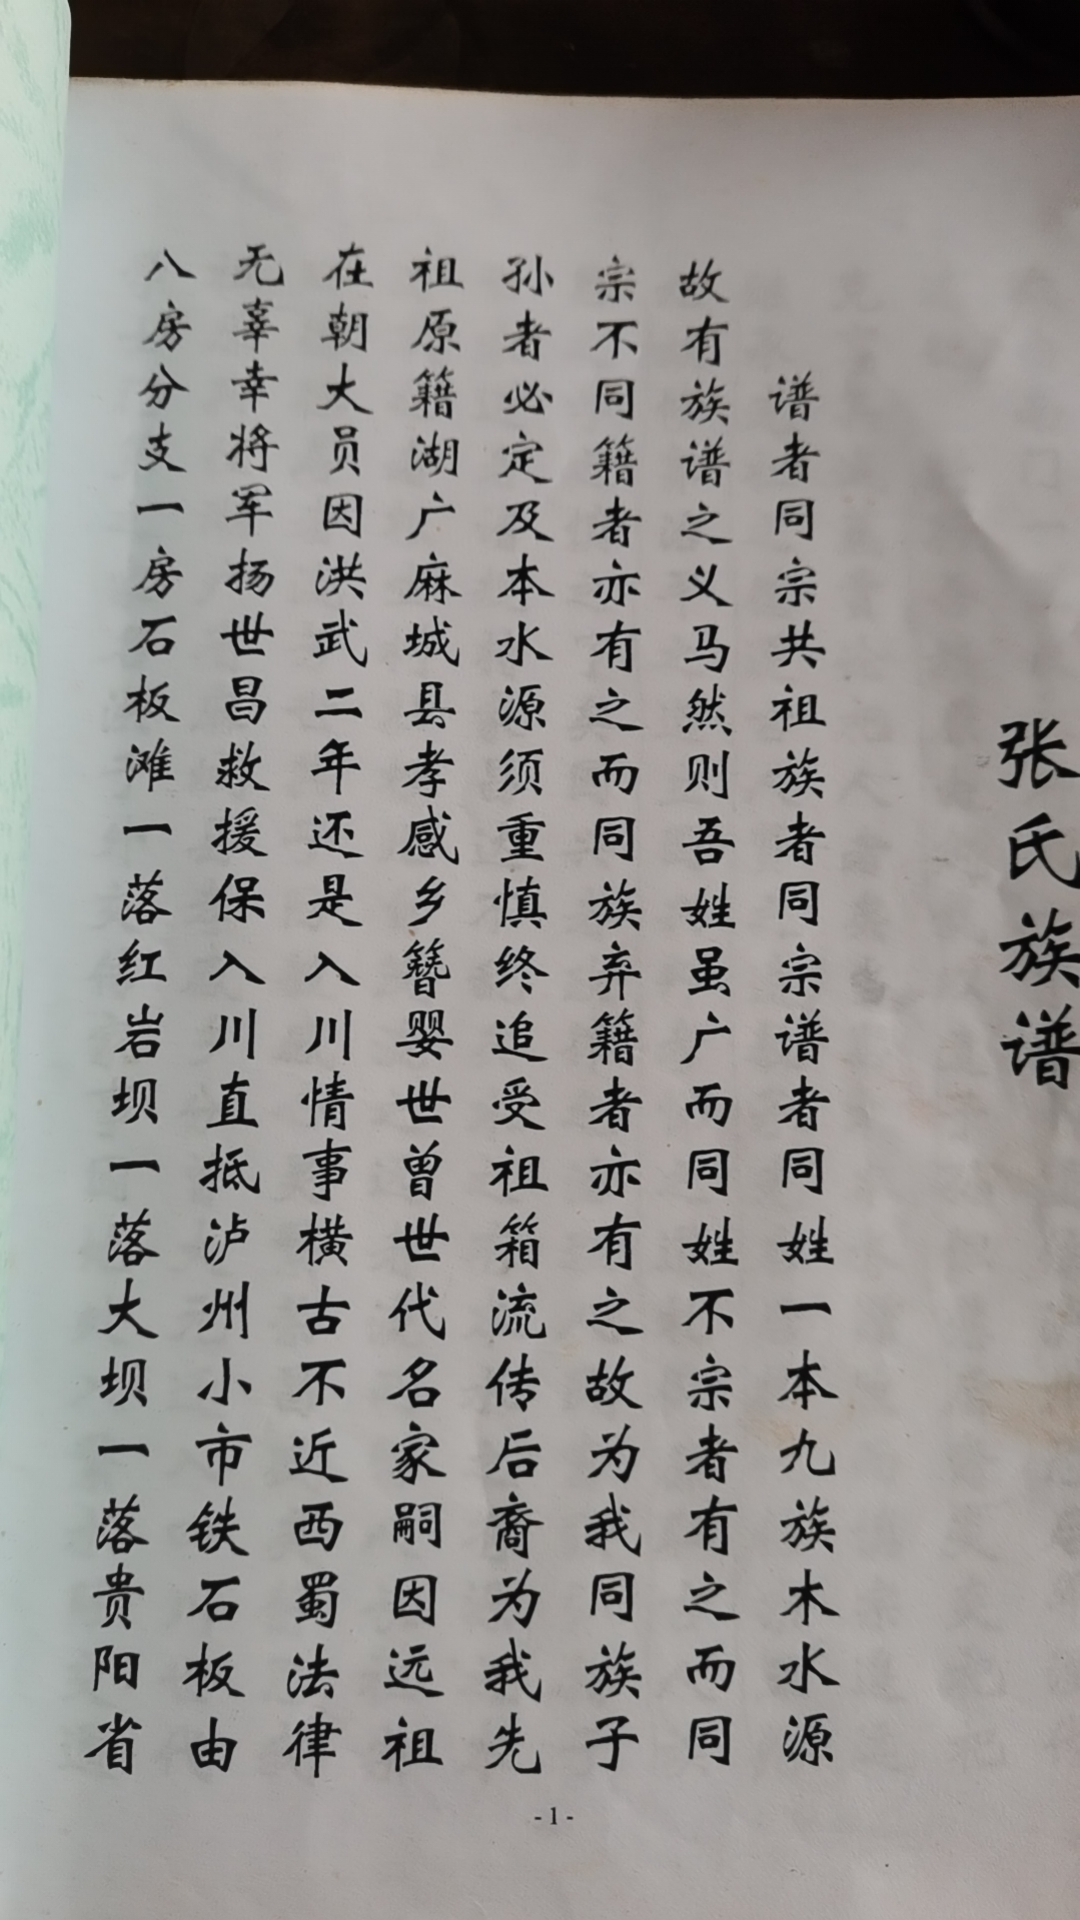 张氏族谱
谱者同宗共祖族者同宗谱者同姓一本九族木水源
故有族谱之义马然则吾姓虽广而同姓不宗者有之而同
宗不同籍者亦有之而同族弃籍者亦有之故为我同族子
孙者必定及本水源须重慎终追受祖箱流传后裔为我先
祖原籍湖广麻城县孝感乡簪婴世曾世代名家嗣因远祖
在朝大员因洪武二年还是入川情事横古不近西蜀法律
无辜幸将军扬世昌救援保入川直抵泸州小市铁石板由
八房分支一房石板滩一落红岩坝一落大坝一落贵阳省
-1-